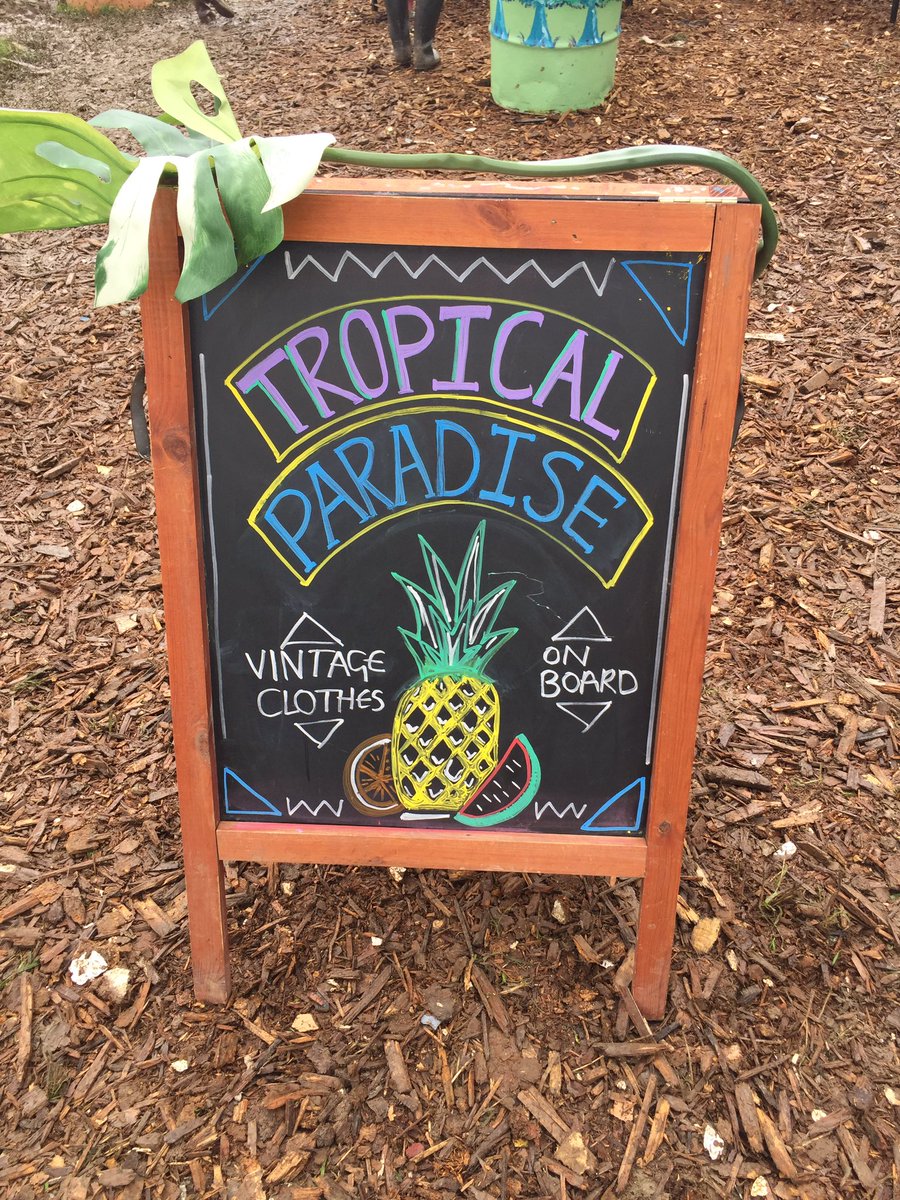 TROPICAL
PARADISE
VINTAGE
CLOTHES
ON
BOARD